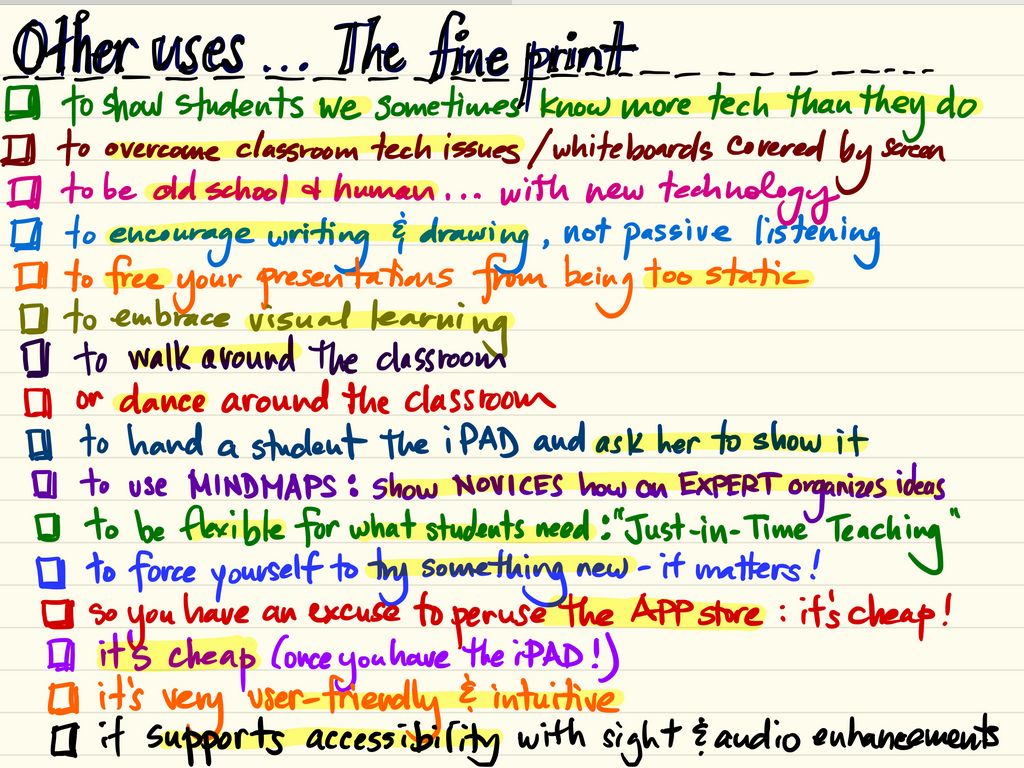 Other uses... The fine print
to show students we sometimes know more tech than they do
to overcome classroom tech issues/whiteboards covered by screen
to be old school & human... with new technology
to encourage writing & drawing, not passive listening
to free your presentations from being too static
to embrace visual learning
to walk around the classroom
or dance around the classroom
to hand a student the iPAD and ask her to show it
to use MINDMAPS: show NOVICES how an EXPERT organizes ideas
to be flexible for what students need: "Just-in-Time Teaching"
to force yourself to try something new - it matters!
so you have an excuse to peruse the APP store: it's cheap!
it's cheap (once you have the iPAD!)
it's very user-friendly & intuitive
it supports accessibility with sight & audio enhancements